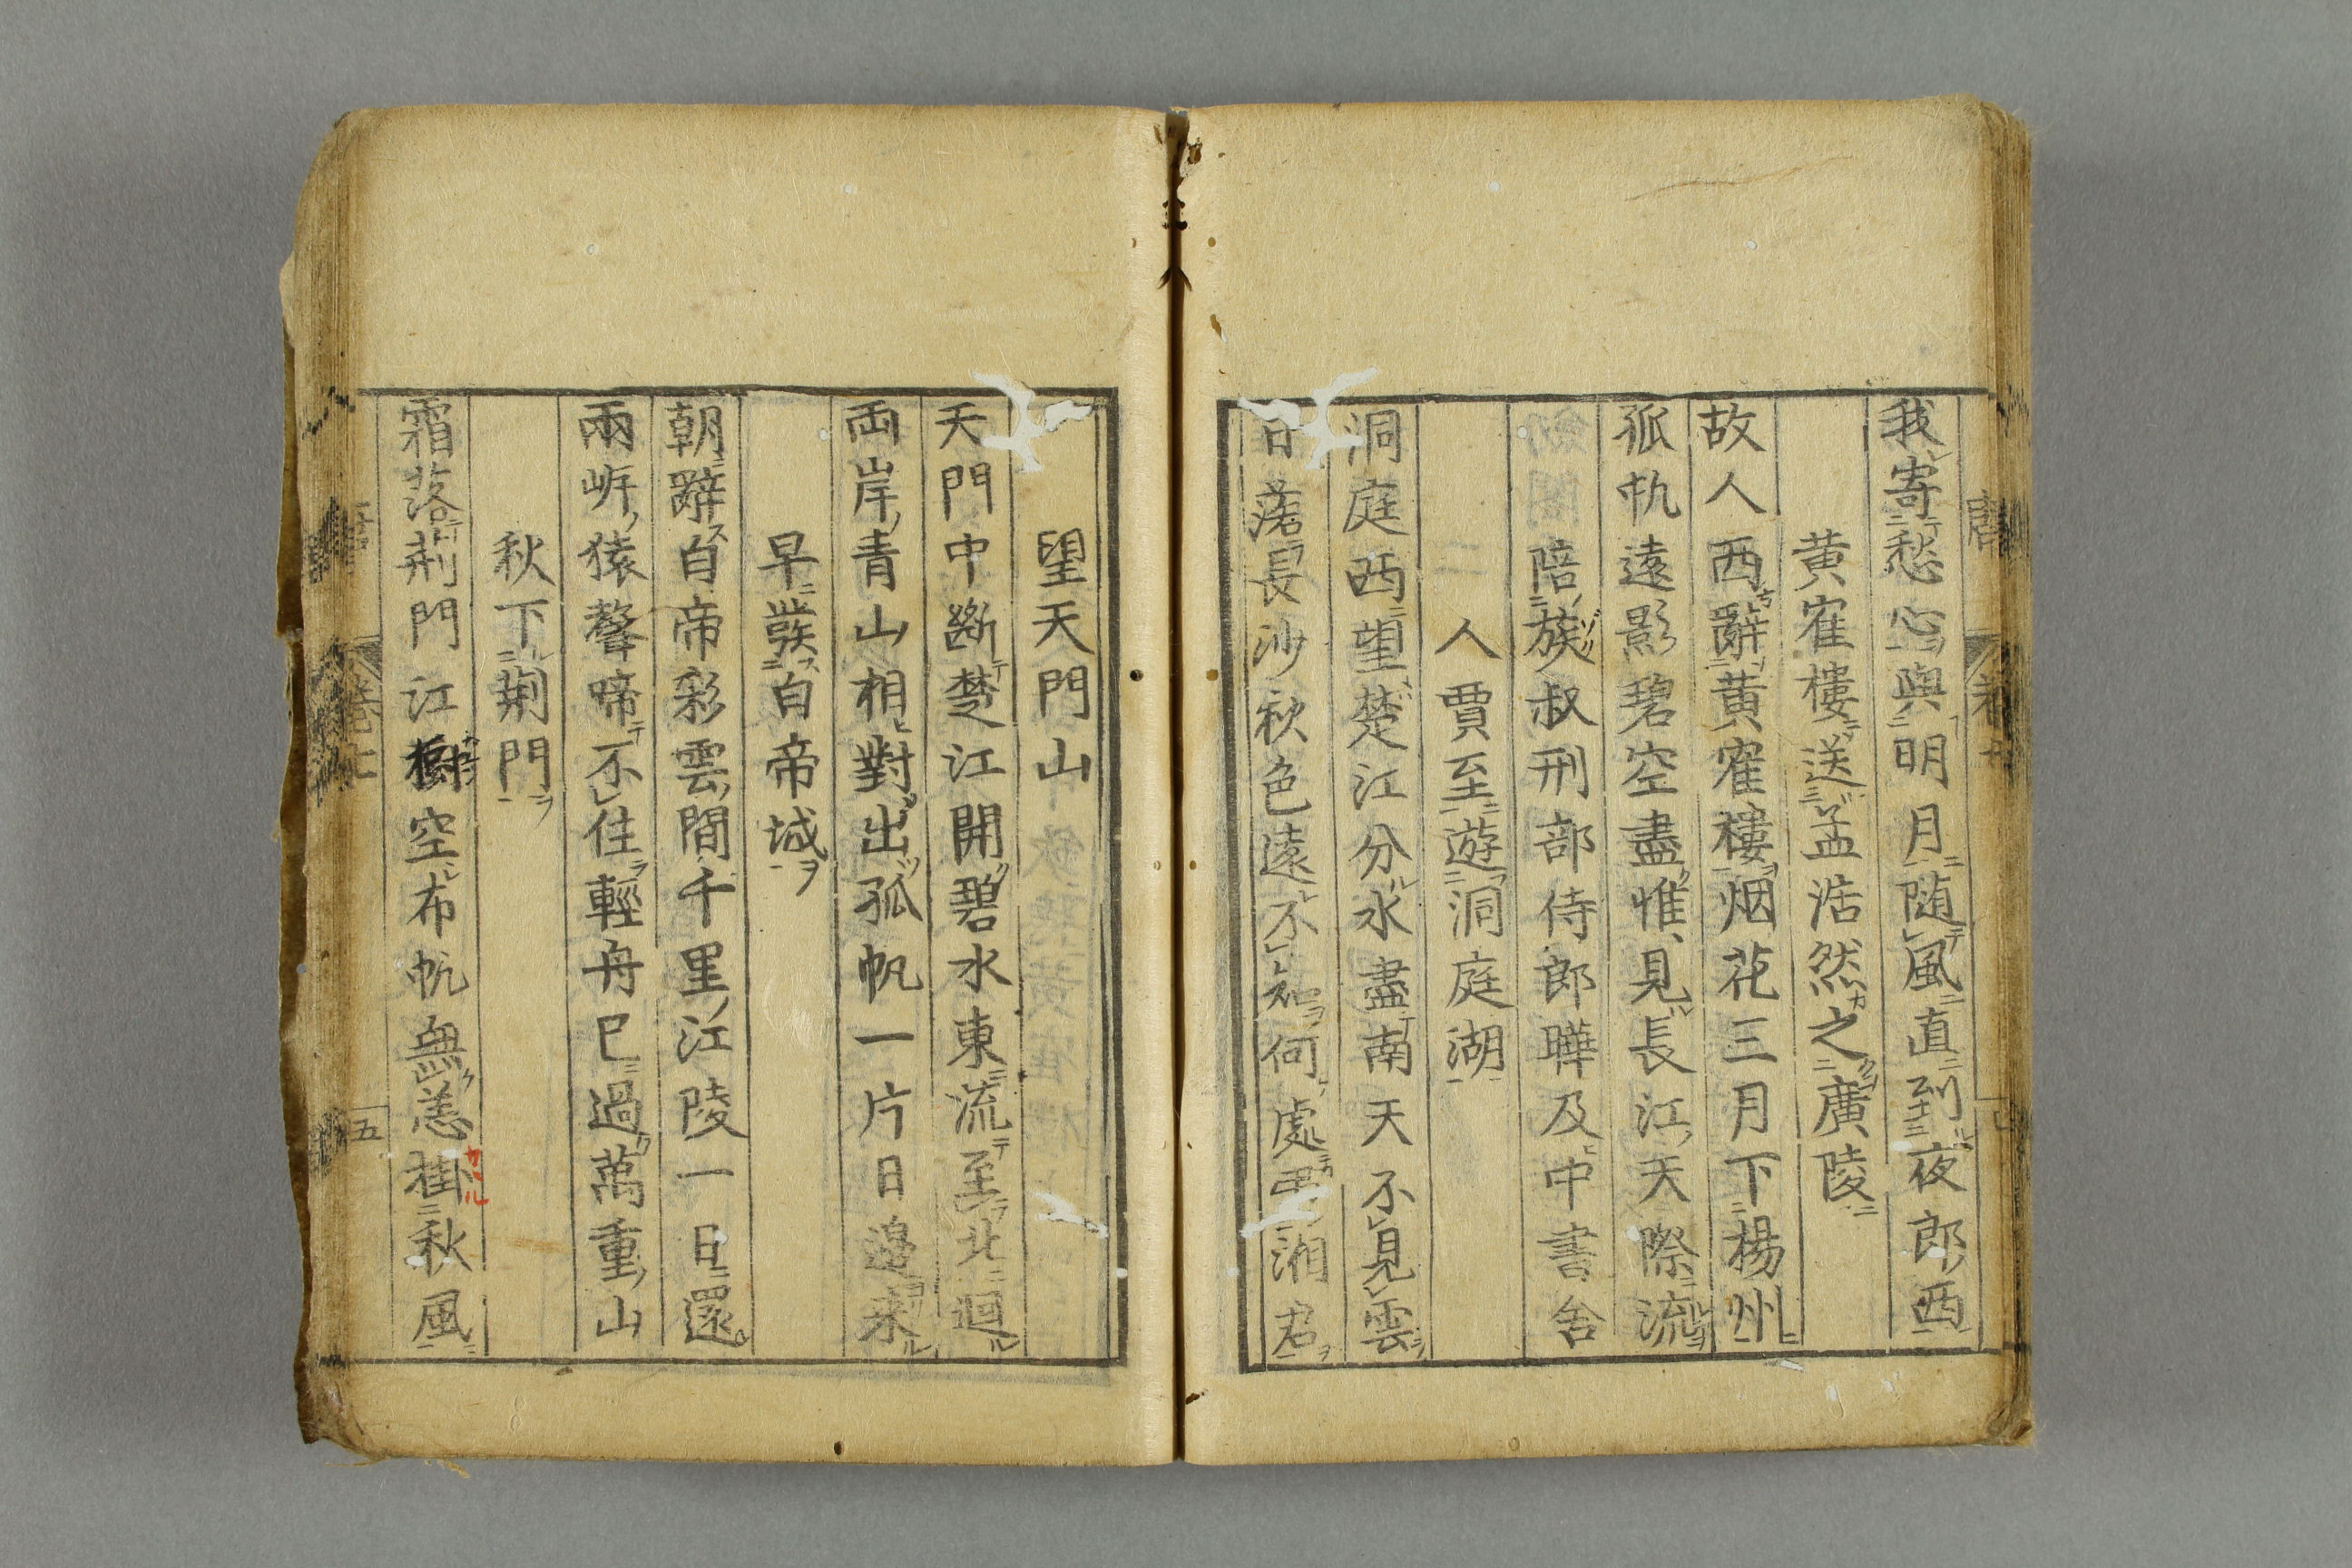 我寄愁心與明月随風直到夜郎西
黄寉樓送孟浩然之廣陵
故人西辭黄寉樓烟花三月下楊州
孤帆遠影碧空盡惟見長江天際流
陪族叔刑部侍郎曄及中書舍
人賈至遊洞庭湖
洞庭西望楚江分水盡南天不見雲
日落長沙秋色遠不知何處吊湘君
望天門山
天門中斷楚江開碧水東流至北廻
両岸青山相對出孤帆一片日邉来
早發白帝城
朝辭白帝彩雲間千里江陵一日還
兩岸猿聲啼不住輕舟已過萬重山
秋下荆門
霜落荆門江樹空布帆無恙掛秋風
五